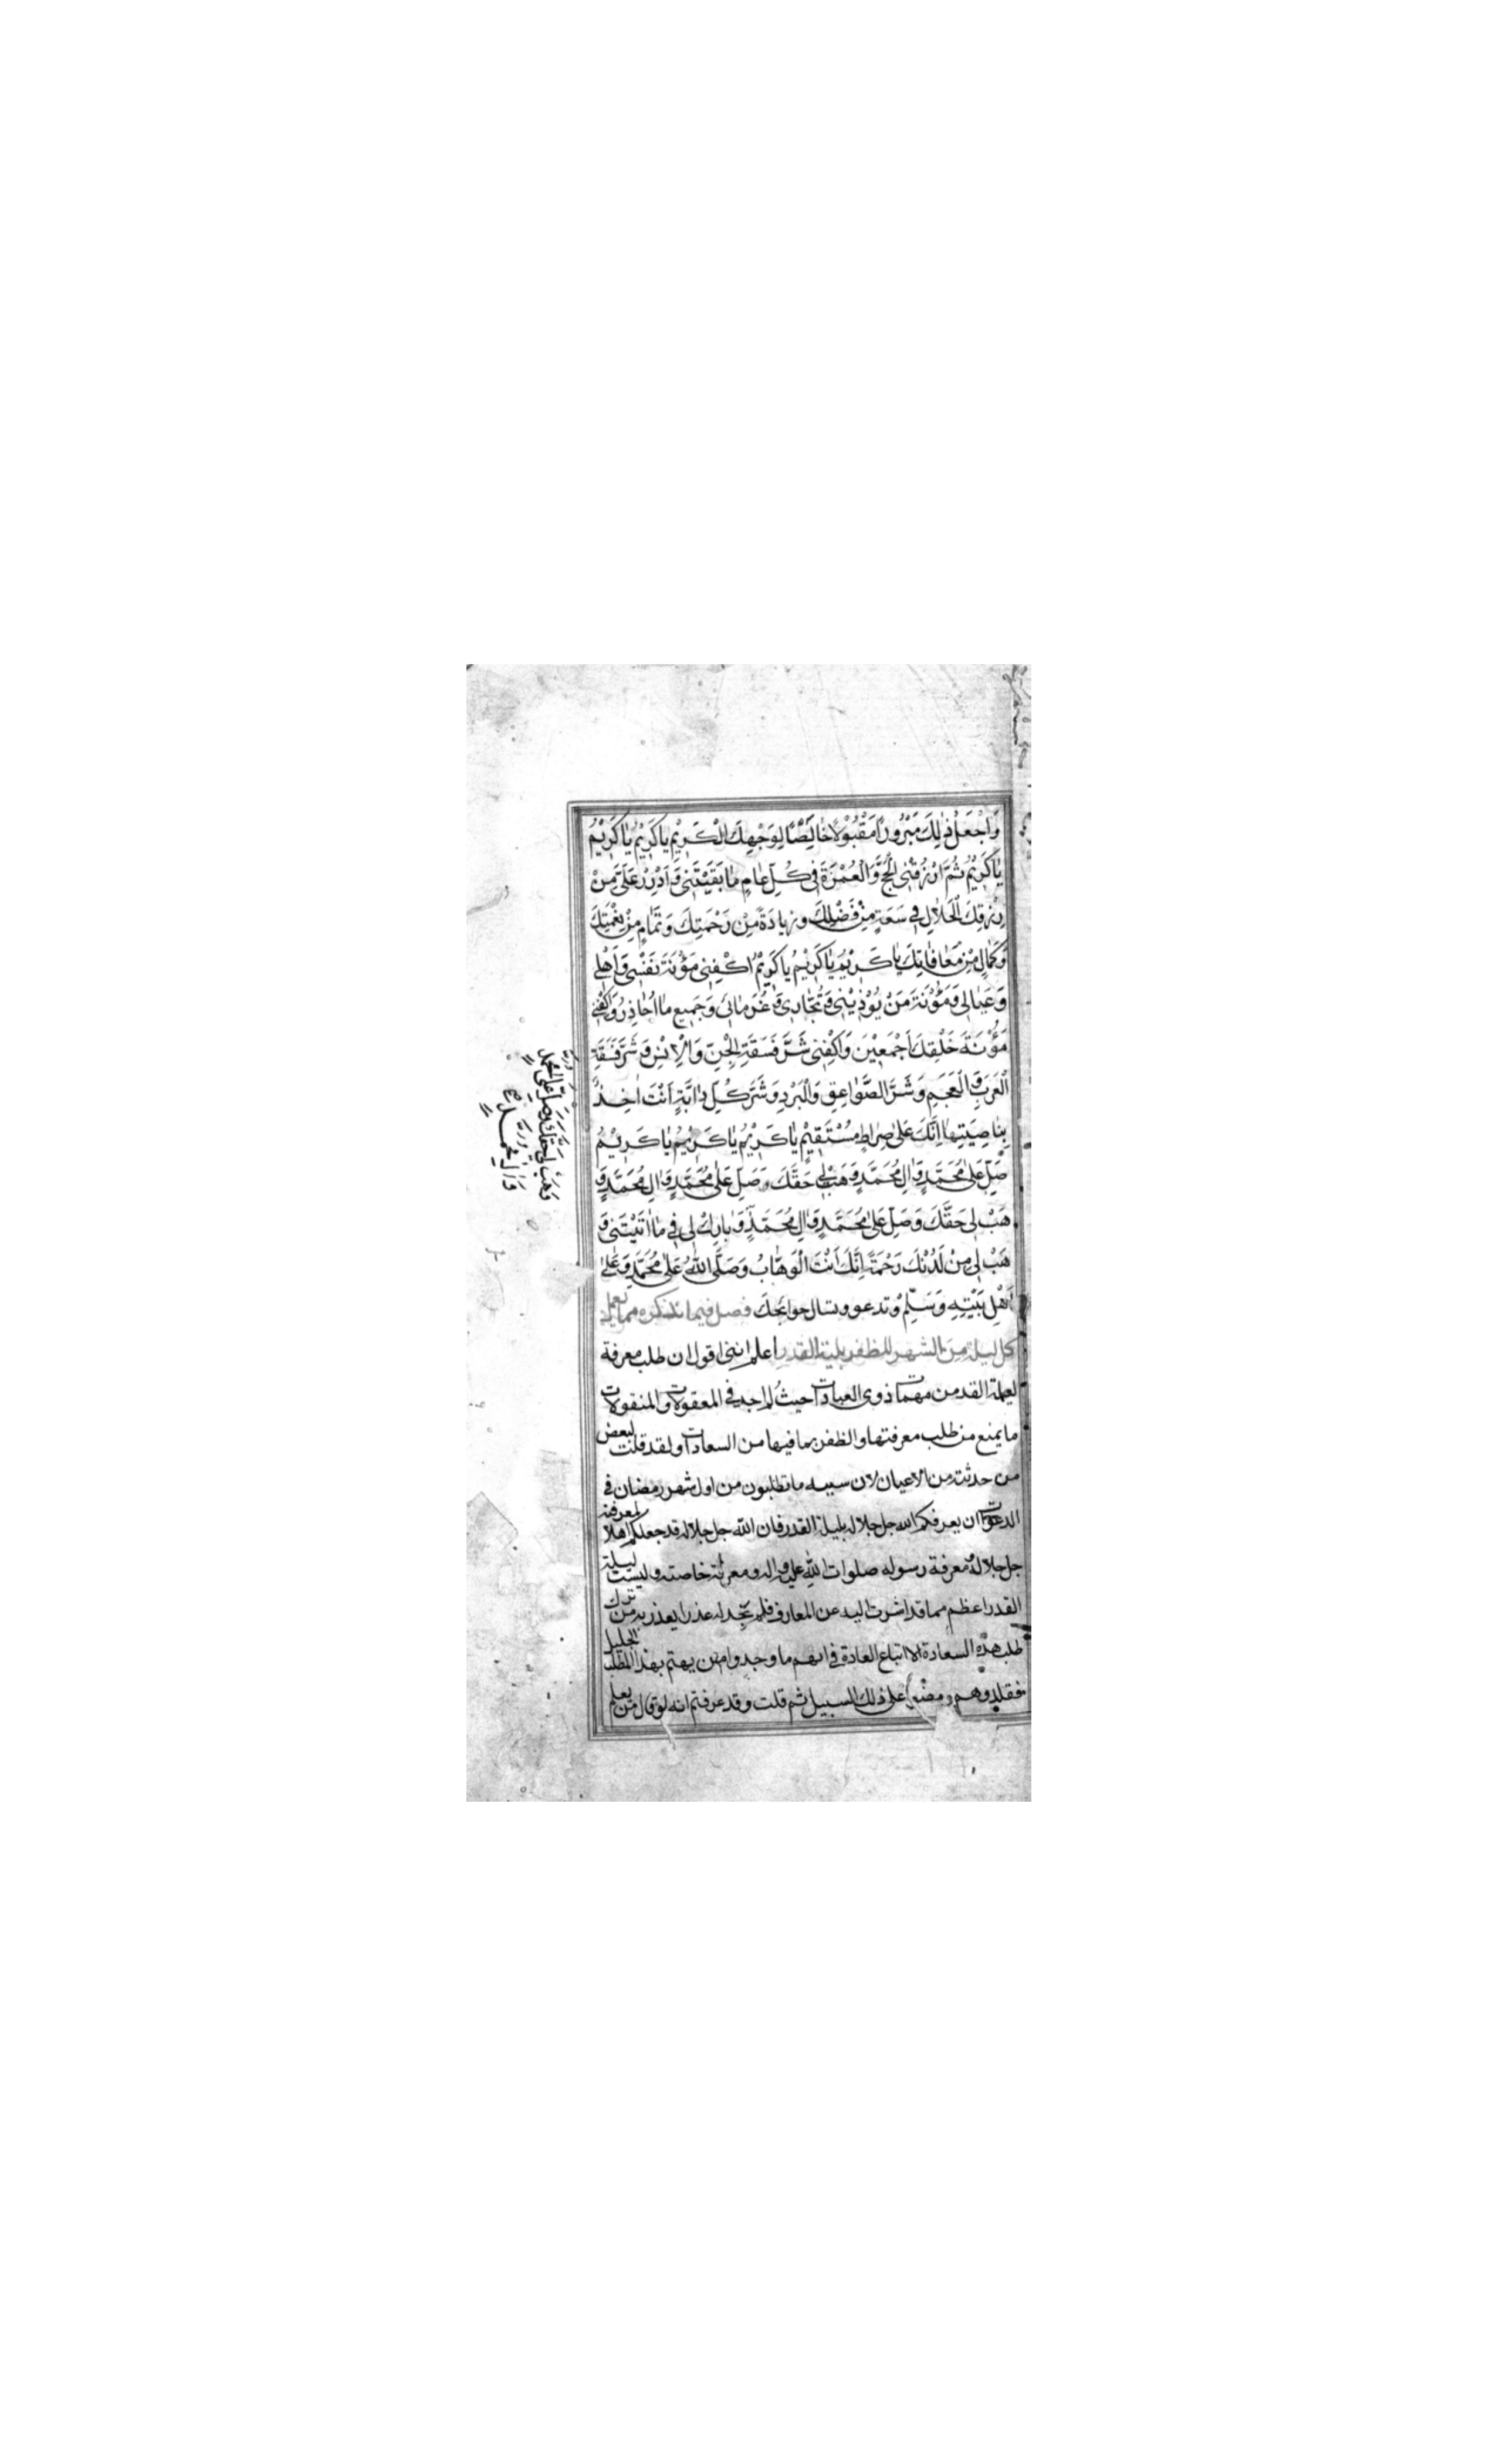 وَاجْعَلْ ذٰلِكَ مَبْرُورًا مَقْبُوْلًا خٰالِصًا لِوَجْهِكَ الْكَرِيْمِ يٰا كَرِيْمُ يٰا كَرِيْمُ
يٰا كَرِيْمُ ثُمَّ ارْزُقْنِى الْحَجَّ وَالْعُمْرَةَ فِى كُلِّ عٰامٍ مٰا بَقَيْتَنِى وَاَدْرِرْ عَلَىَّ مِنْ
رِزْقِكَ الْحَلاٰلِ فِى سَعَةٍ مِنْ فَضْلِكَ وَزِيٰادَةً مِنْ رَحْمَتِكَ وَتَمٰامٍ مِنْ نِعْمَتِكَ
وَكَمٰالٍ مِنْ مَعٰافٰاتِكَ يٰا كَرِيْمُ يٰا كَرِيْمُ يٰا كَرِيْمُ اكْفِنِى مَؤُنَةَ نَفْسِى وَاَهْلِى
وَعَيٰالِى وَمَؤُنَةَ مَنْ يُؤْذِيْنِى وَتُجّٰارِى وَغُرَمٰائِى وَجَمِيعِ مٰا اُحٰاذِرُ وَاكْفِنِى
مَؤُنَةَ خَلْقِكَ اَجْمَعِيْنَ وَاكْفِنِى شَرَّ فَسَقَةِ الْجِنِّ وَالْاِنْسِ وَشَرَّ فَسَقَةِ
الْعَرَبِ وَالْعَجَمِ وَشَرَّ الصَّوٰاعِقِ وَالْبَرْدِ وَشَرَّ كُلِّ دٰابَّةٍ اَنْتَ اٰخِذٌ
بِنٰاصِيَتِهٰا اِنَّكَ عَلىٰ صِرٰاطٍ مُسْتَقِيْمٍ يٰا كَرِيْمُ يٰا كَرِيْمُ يٰا كَرِيْمُ
صَلِّ عَلىٰ مُحَمَّدٍ وَاٰلِ مُحَمَّدٍ وَهَبْ لِى حَقَّكَ وَصَلِّ عَلىٰ مُحَمَّدٍ وَاٰلِ مُحَمَّدٍ وَ
هَبْ لِى حَقَّكَ وَصَلِّ عَلىٰ مُحَمَّدٍ وَاٰلِ مُحَمَّدٍ وَبٰارِكْ لِى فِى مٰا اٰتَيْتَنِى وَ
هَبْ لِى مِنْ لَدُنْكَ رَحْمَةً اِنَّكَ اَنْتَ الْوَهّٰابُ وَصَلَّى اللّٰهُ عَلىٰ مُحَمَّدٍ وَعَلىٰ
اَهْلِ بَيْتِهِ وَسَلِّمْ وتدعو وتسال حوائجك فصل فيما نذكره مما يعمل
كل ليلة من الشهر للظفر بليلة القدر اعلم اننى اقول ان طلب معرفة
ليلة القدر من مهمات ذوى العبادات حيث لم اجد فى المعقولات والمنقولات
ما يمنع من طلب معرفتها والظفر بما فيها من السعادات ولقد قلت لبعض
من حدثته من الاعيان لان سبيه ما تطلبون من اول شهر رمضان فى
الدعوات ان يعرفكم الله جل جلاله بليلة القدر فان الله جل جلاله قد جعلكم اهلا لمعرفته
جل جلاله ومعرفة رسوله صلوات الله عليه واله ومعرفة خاصته وليست ليلة
القدر اعظم مما قد اشرت اليه عن المعارف فلم تجد له عذرا يعذر به من ترك
طلب هذه السعادة الا اتباع العادة فى انهم ما وجدوا من يهتم بهذا المطلب الجليل
فقلدوهم ومضوا على ذلك السبيل ثم قلت وقد عرفتم انه لو قال من يعلم
وَهَبْ لِى حَقَّكَ وَصَلِّ عَلىٰ مُحَمَّدٍ
وَاٰلِ مُحَمَّدٍ